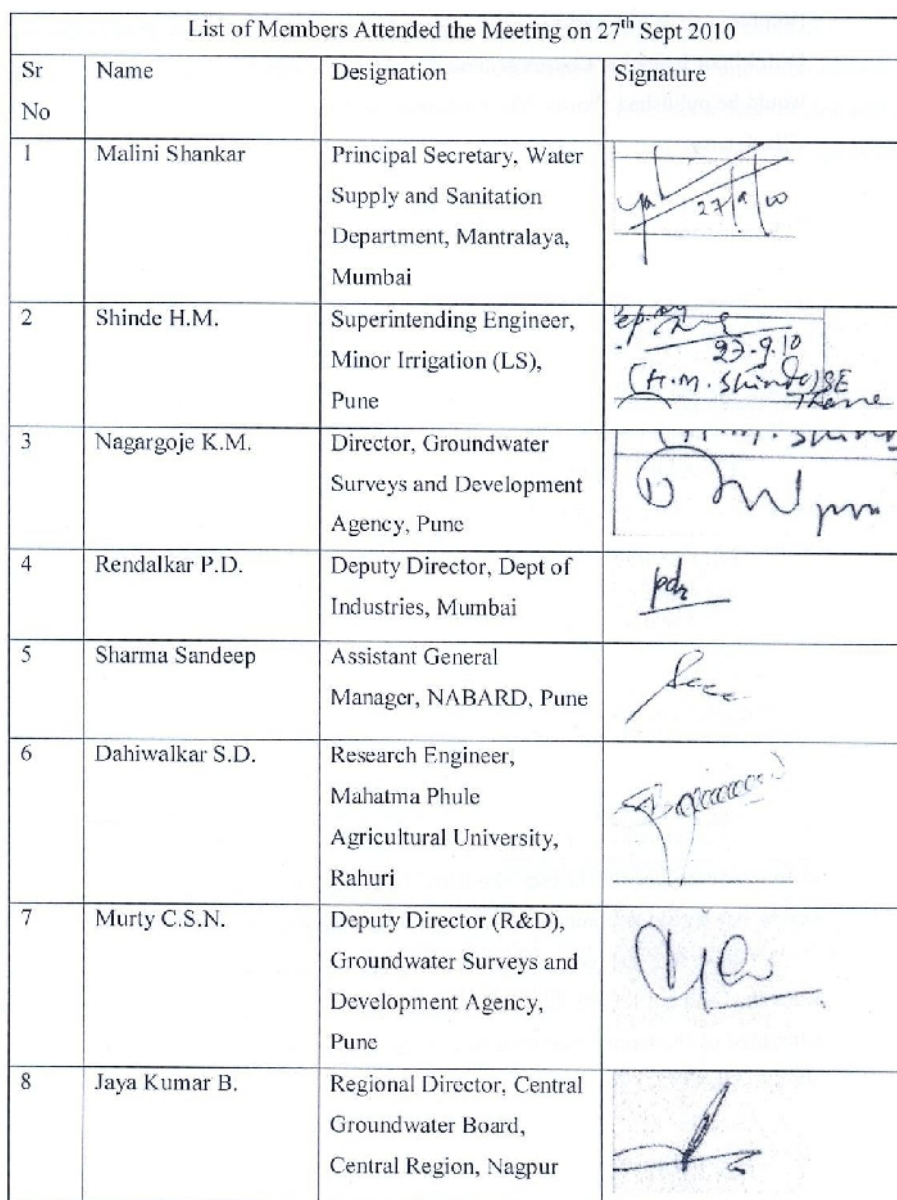 List of Members Attended the Meeting on 27th Sept 2010
Sr No
Name
Designation
Signature
1
Malini Shankar
Principal Secretary, Water
Supply and Sanitation
Department, Mantralaya,
Mumbai
27/9/00
2
Shinde H.M.
Superintending Engineer,
Minor Irrigation (LS),
Pune
27.9.10
(H.M. Shinde) SE
Thane
3
Nagargoje K.M.
Director, Groundwater
Surveys and Development
Agency, Pune
(H.M. Shind
4
Rendalkar P.D.
Deputy Director, Dept of
Industries, Mumbai
pdr
5
Sharma Sandeep
Assistant General
Manager, NABARD, Pune
6
Dahiwalkar S.D.
Research Engineer,
Mahatma Phule
Agricultural University,
Rahuri
7
Murty C.S.N.
Deputy Director (R&D),
Groundwater Surveys and
Development Agency,
Pune
8
Jaya Kumar B.
Regional Director, Central
Groundwater Board,
Central Region, Nagpur